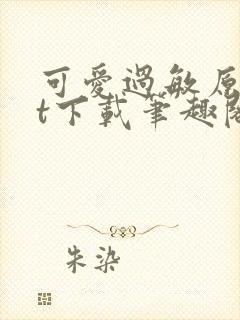 可愛過敏原
t下載筆趣閣
朱染